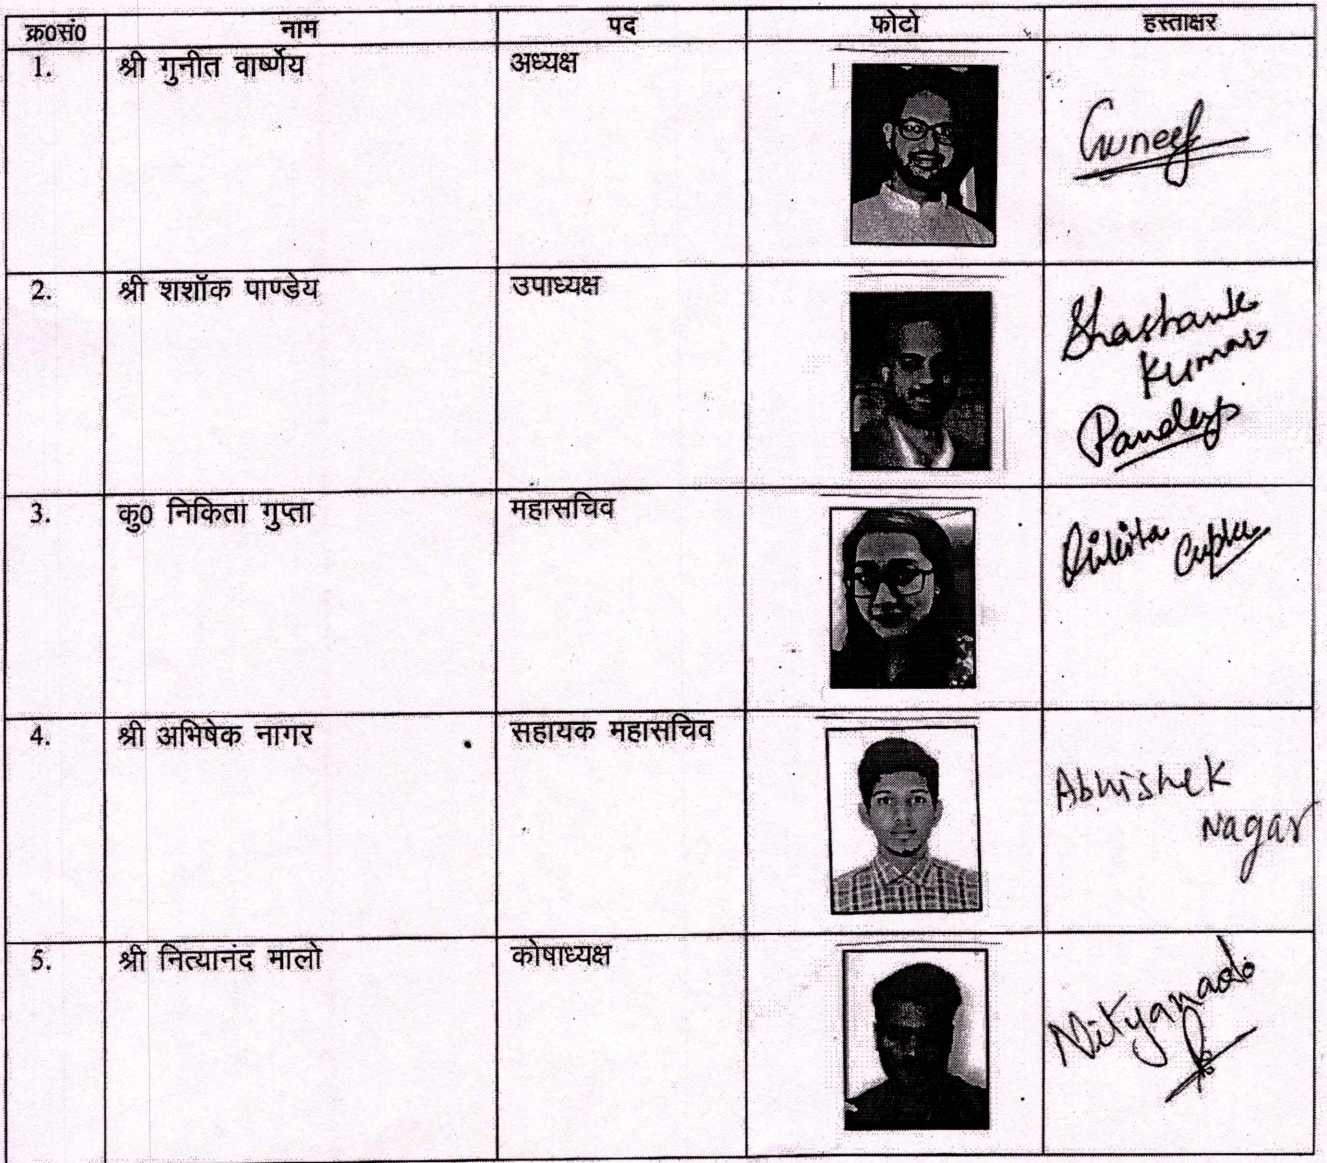 क्र0सं0 नाम पद फोटो हस्ताक्षर
1. श्री गुनीत वार्ष्णेय अध्यक्ष
Guneet
2. श्री शशॉक पाण्डेय उपाध्यक्ष
Shashank
Kumar
Pandey
3. कु0 निकिता गुप्ता महासचिव
Nikita Gupta
4. श्री अभिषेक नागर सहायक महासचिव
Abhishek
Nagar
5. श्री नित्यानंद मालो कोषाध्यक्ष